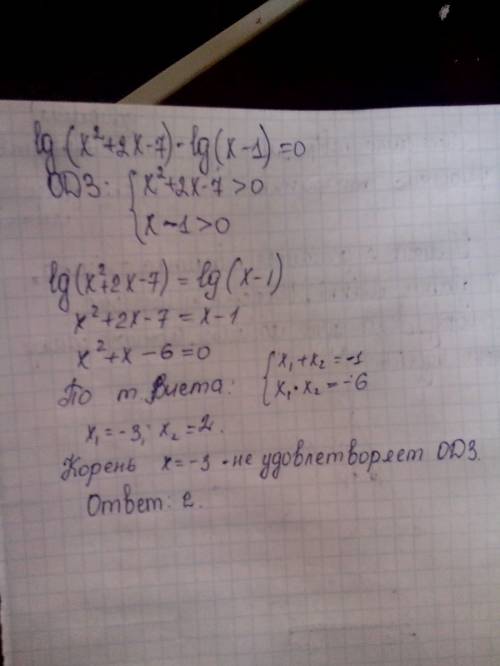 lg(x²+2x-7)-lg(x-1)=0
ОДЗ: { x²+2x-7>0
x-1>0
lg(x²+2x-7)=lg(x-1)
x²+2x-7=x-1
x²+x-6=0
По т. Виета: { x₁+x₂=-1
x₁·x₂=-6
x₁=-3; x₂=2.
Корень x=-3 - не удовлетворяет ОДЗ.
Ответ: 2.